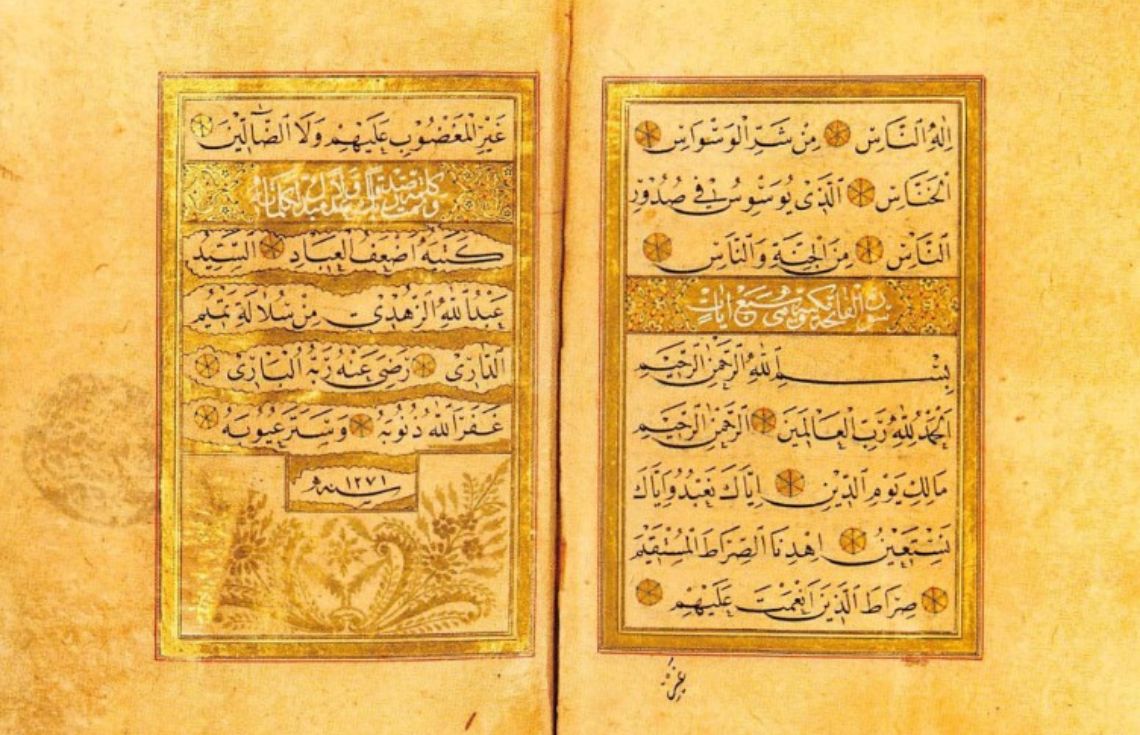 اِلٰهِ النَّاسِ مِنْ شَرِّ الْوَسْوَاسِ
الْخَنَّاسِ الَّذٖى يُوَسْوِسُ فٖى صُدُوْرِ
النَّاسِ مِنَ الْجِنَّةِ وَالنَّاسِ
سورة الفاتحة مكية وهى سبع ايات
بِسْمِ اللّٰهِ الرَّحْمٰنِ الرَّحٖيمِ
اَلْحَمْدُ لِلّٰهِ رَبِّ الْعَالَمٖينَ اَلرَّحْمٰنِ الرَّحٖيمِ
مَالِكِ يَوْمِ الدّٖينِ اِيَّاكَ نَعْبُدُ وَاِيَّاكَ
نَسْتَعٖينُ اِهْدِنَا الصِّرَاطَ الْمُسْتَقٖيمَ
صِرَاطَ الَّذٖينَ اَنْعَمْتَ عَلَيْهِمْ
غَيْرِ الْمَغْضُوبِ عَلَيْهِمْ وَلَا الضَّالّٖينَ
وتمت كلمة ربك صدقا وعدلا لا مبدل لكلماته
كَتَبَهُ اَضْعَفُ الْعِبَادِ السَّيِّدُ
عَبْدُ اللّٰهِ الزُّهْدٖى مِنْ سُلَالَةِ تَمٖيمِ
الدَّارٖى رَضِىَ عَنْهُ رَبُّهُ الْبَارٖى
غَفَرَ اللّٰهُ ذُنُوبَهُ وَسَتَرَ عُيُوبَهُ
سنه ١٢٧١